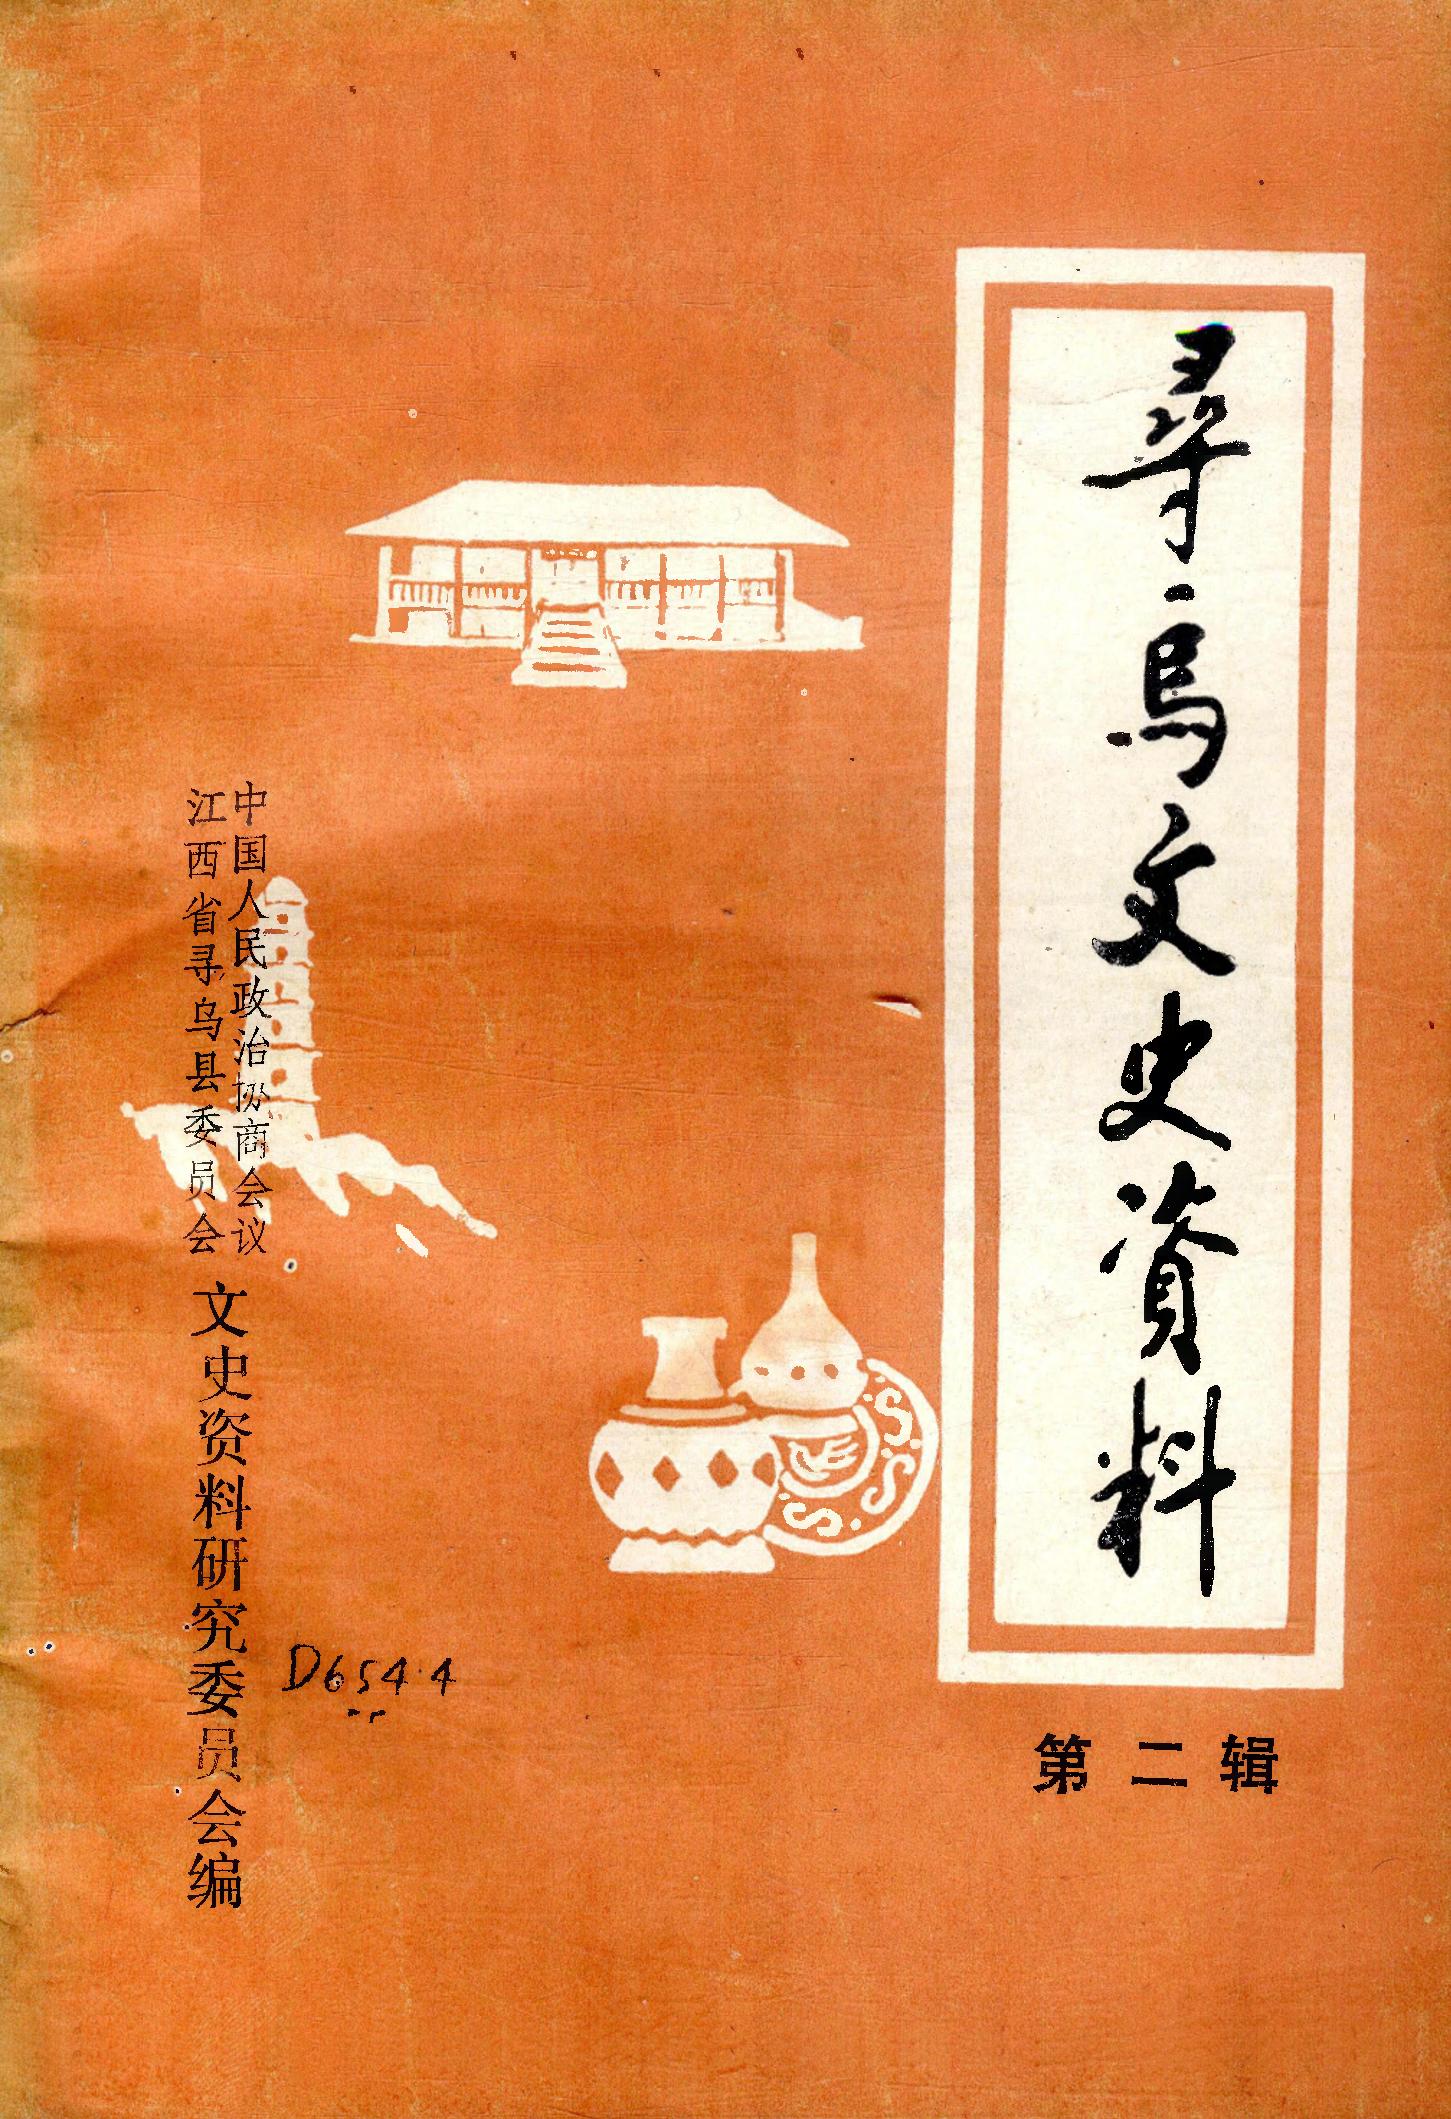 尋乌文史資料
第二辑
中国人民政治协商会议
江西省寻乌县委员会
文史资料研究委员会编
D654.4